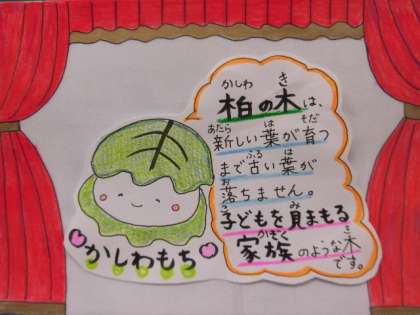 かしわ き
柏の木は、
あたら は そだ
新しい葉が育つ
ふる は
まで古い葉が
お
落ちません。
こ み
子どもを見まもる
かぞく き
家族のような木
です。
かしわもち